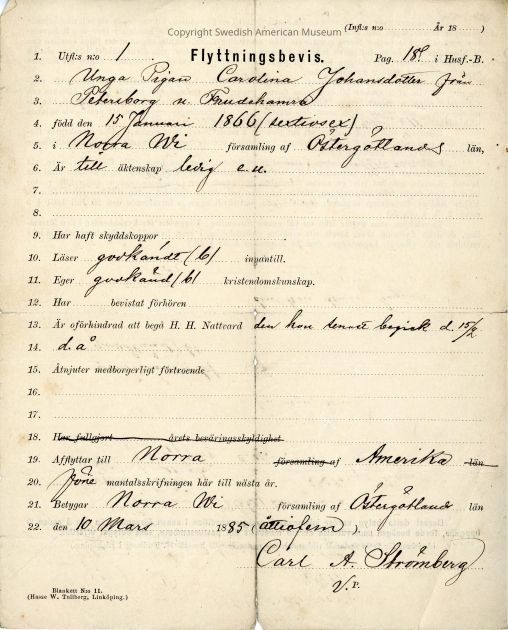 Copyright Swedish American Museum
(Infl:s n:o År 18 )
1. Utfl:s n:o 1 Flyttningsbevis. Pag. 189 i Husf.-B.
2. Unga Pigan Carolina Johansdotter från
3. Petersborg u. Freudehamra
4. född den 15 Januari 1866 (sextiosex)
5. i Norra Wi församling af Östergötlands län,
6. Är till äktenskap ledig e. u.
7.
8.
9. Har haft skyddskoppor
10. Läser godkändt (b) innantill.
11. Eger godkänd (b) kristendomskunskap.
12. Har bevistat förhören
13. Är oförhindrad att begå H. H. Nattvard den hon senast begick d. 15/2
14. d. å
15. Åtnjuter medborgerligt förtroende
16.
17.
18. Har fullgjort årets beväringsskyldighet
19. Afflyttar till Norra församling af Amerika län
20. före mantalsskrifningen här till nästa år.
21. Betygar Norra Wi församling af Östergötland län
22. den 10 Mars 1885 (åttiofem).
Carl A. Strömberg
V. P.
Blankett N:o 11.
(Hasse W. Tullberg, Linköping.)